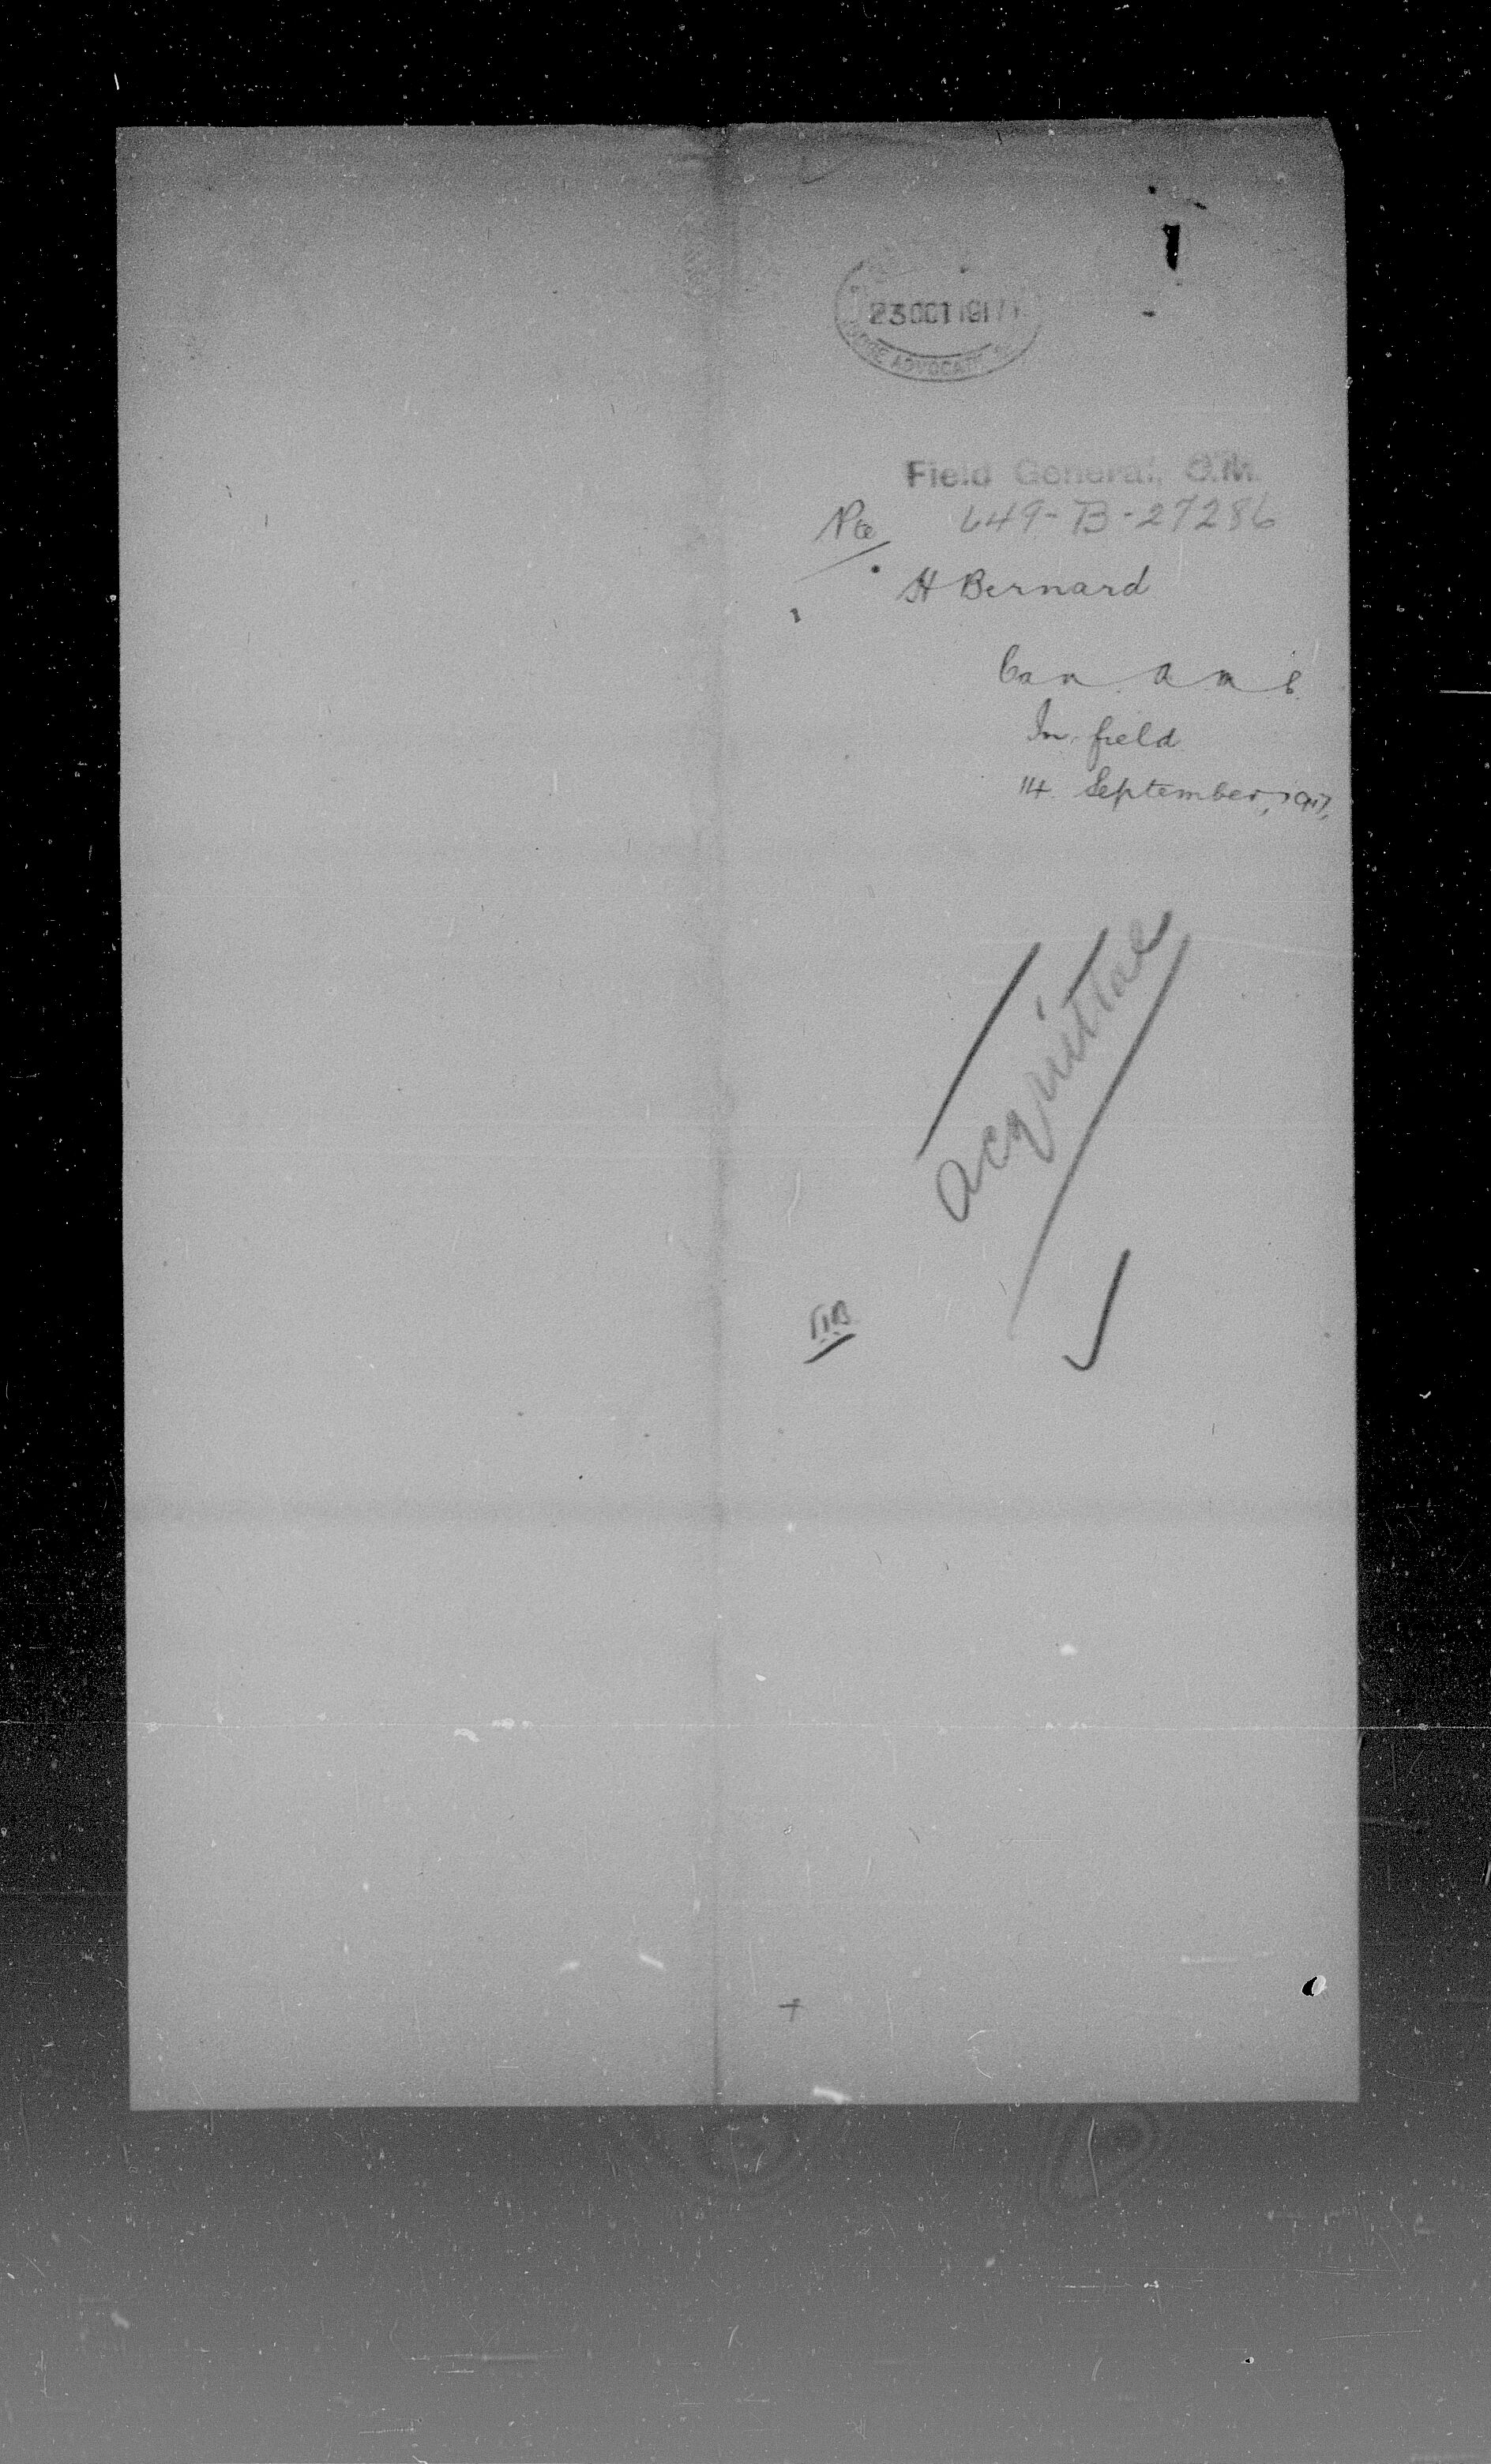 23 OCT 1917
ADVOCATE
Field General, C.M.
Pte 649-B-27286
H Bernard
Can A M C
In field
14 September, 1917,
Acquittal